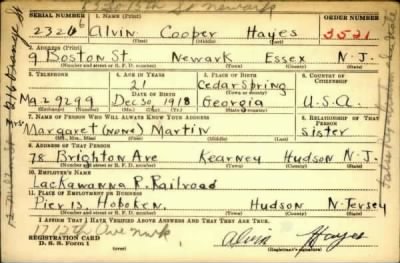 SERIAL NUMBER 1. NAME (Print) ORDER NUMBER
2326 Alvin Cooper Hayes 3521
(First) (Middle) (Last)
2. ADDRESS (Print)
9 Boston St. Newark Essex N.J.
(Number and street or R. F. D. number) (Town) (County) (State)
3. TELEPHONE 4. AGE IN YEARS 5. PLACE OF BIRTH 6. COUNTRY OF CITIZENSHIP
21 Cedar Spring
DATE OF BIRTH (Town or county)
Ma.29299 Dec 30 1918 Georgia U.S.A.
(Exchange) (Number) (Mo.) (Day) (Yr.) (State or country)
7. NAME OF PERSON WHO WILL ALWAYS KNOW YOUR ADDRESS 8. RELATIONSHIP OF THAT PERSON
Mrs Margaret (none) Martin sister
(Mr., Mrs., Miss) (First) (Middle) (Last)
9. ADDRESS OF THAT PERSON
78 Brighton Ave Kearney Hudson N.J.
(Number and street or R. F. D. number) (Town) (County) (State)
10. EMPLOYER'S NAME
Lackawanna R. Railroad
11. PLACE OF EMPLOYMENT OR BUSINESS
Pier 13, Hoboken. Hudson N-Jersey
(Number and street or R. F. D. number) (Town) (County) (State)
I AFFIRM THAT I HAVE VERIFIED ABOVE ANSWERS AND THAT THEY ARE TRUE.
REGISTRATION CARD
D. S. S. Form 1 Alvin Hayes
(over) (Registrant's signature)